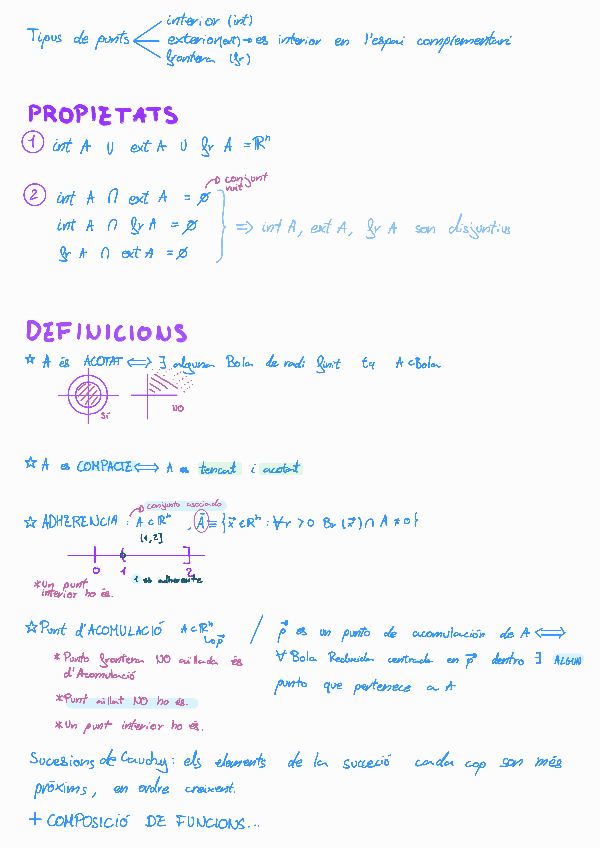 Tipus de punts
interior (int)
exterior (ext) → es interior en l'espai complementari
frontera (fr)
PROPIETATS
1 int A ∪ ext A ∪ fr A = ℝⁿ
2 int A ∩ ext A = ∅
conjunt
buit
int A ∩ fr A = ∅
fr A ∩ ext A = ∅
⇒ int A, ext A, fr A son disjuntius
DEFINICIONS
☆ A és ACOTAT ⟺ ∃ alguna Bola de radi finit tq A ⊂ Bola
SÍ
NO
☆ A es COMPACTE ⟺ A es tancat i acotat
conjunto asociado
☆ ADHERENCIA : A ⊂ ℝⁿ , Ā ≡ {x⃗ ∈ ℝⁿ : ∀r > 0 Br (x⃗) ∩ A ≠ ∅}
(1,2]
0 1 2
1 es adherente
* Un punt
interior ho és.
☆ Punt d'ACOMULACIÓ A ⊂ ℝⁿ
↳ p⃗
* Punto frontera NO aïllada és
d'Acomulació
* Punt aïllat NO ho és.
* Un punt interior ho és.
/ p⃗ es un punto de acomulación de A ⟺
∀ Bola Reducida centrada en p⃗ dentro ∃ ALGUN
punto que pertenece a A
Sucesions de Cauchy: els elements de la succeció cada cop son més
pròxims, en ordre creixent.
+ COMPOSICIÓ DE FUNCIONS...